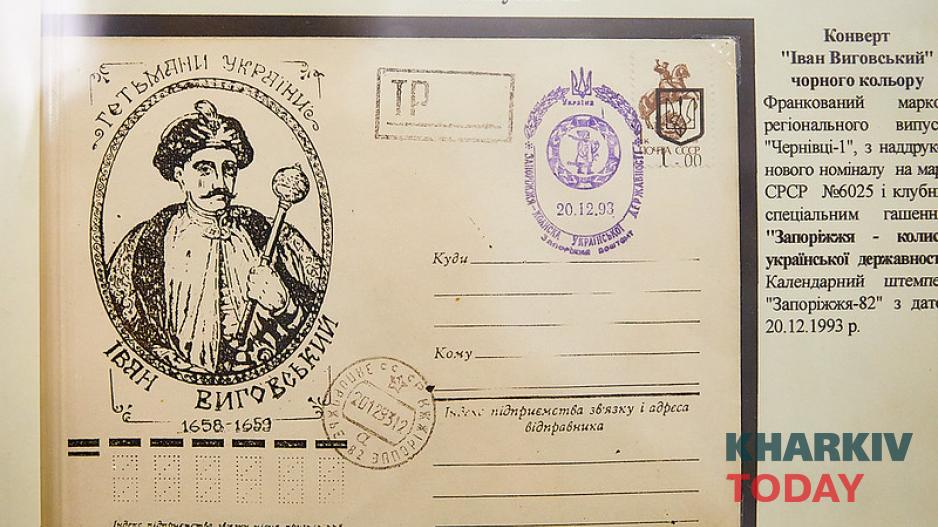 ГЕТЬМАНИ УКРАЇНИ
ІВАН ВИГОВСЬКИЙ
1658-1659
ТР
Україна
ЗАПОРІЖЖЯ-КОЛИСКА УКРАЇНСЬКОЇ ДЕРЖАВНОСТІ
20.12.93
ЗАПОРІЖЖЯ ПОШТАМТ
ПОЧТА СССР
1-00
Куди
Кому
Індекс підприємства зв'язку і адреса
відправника
Конверт
"Іван Виговський"
чорного кольору
Франкований марко
регіонального випус
"Чернівці-1", з наддрук
нового номіналу на мар
СРСР №6025 і клубн
спеціальним гашенн
"Запоріжжя - колис
української державност
Календарний штемпе
"Запоріжжя-82" з дато
20.12.1993 р.
KHARKIV
TODAY